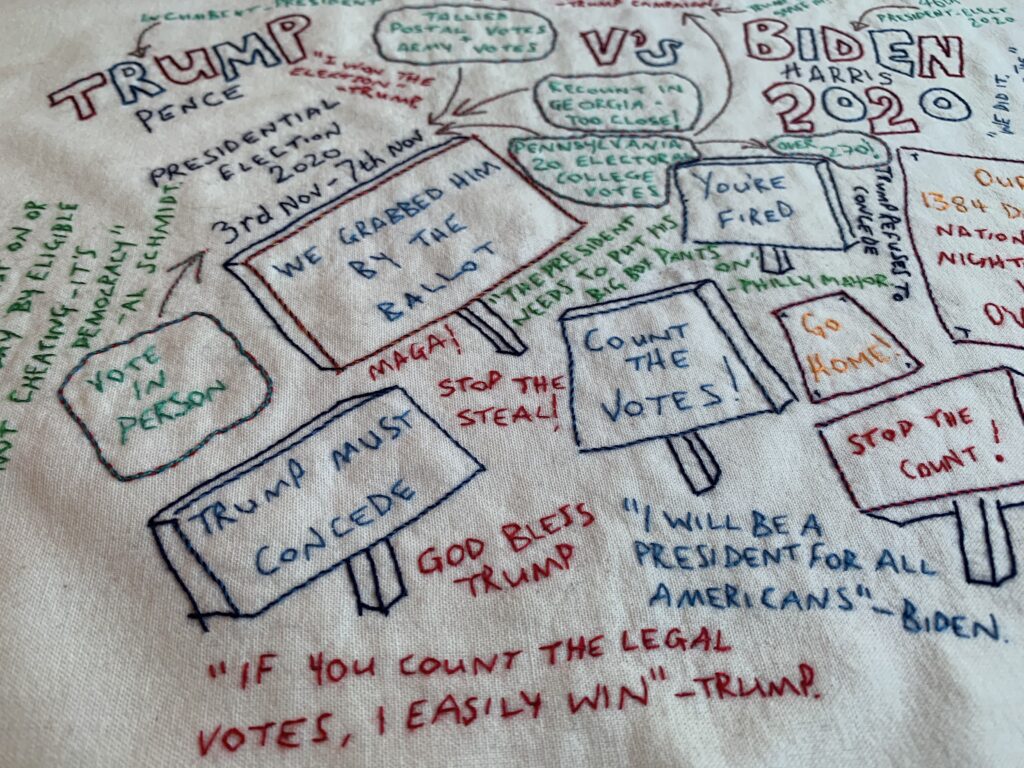 INCUMBENT-PRESIDENT
TRUMP
PENCE
"I WON THE
ELECTION"
-TRUMP
TALLIED
POSTAL VOTES
+
ARMY VOTES
-TRUMP CAMPAIGN
V'S
BIDEN
HARRIS
2020
46th
PRESIDENT-ELECT
2020
"WE DID IT,
PRESIDENTIAL
ELECTION
2020
3rd NOV-7th NOV
RECOUNT IN
GEORGIA-
TOO CLOSE!
PENNSYLVANIA
20 ELECTORAL
COLLEGE
VOTES
OVER 270!
WE GRABBED HIM
BY THE
BALLOT
YOU'RE
FIRED
TRUMP REFUSES TO
CONCEDE
OUR
1384 D
NATION
NIGHT
OV
"THE PRESIDENT
NEEDS TO PUT HIS
BIG BOY PANTS
ON"
-PHILLY MAYOR
ON OR
BY ELIGIBLE
CHEATING-IT'S
DEMOCRACY"
-AL SCHMIDT.
VOTE
IN
PERSON
MAGA!
STOP THE
STEAL!
COUNT
THE
VOTES!
GO
HOME!
STOP THE
COUNT!
TRUMP MUST
CONCEDE
GOD BLESS
TRUMP
"I WILL BE A
PRESIDENT FOR ALL
AMERICANS"-BIDEN.
"IF YOU COUNT THE LEGAL
VOTES, I EASILY WIN"-TRUMP.